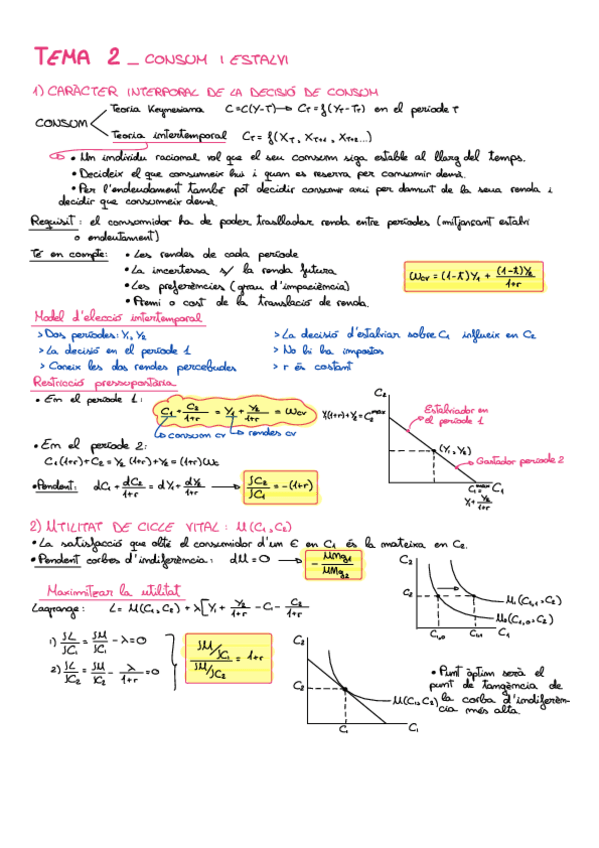 TEMA 2 _ CONSUM I ESTALVI
1) CARÀCTER INTERPORAL DE LA DECISIÓ DE CONSUM
CONSUM
Teoria Keynesiana C=C(Y-T) → Ct = f(Yt-Tt) en el període t
Teoria intertemporal Ct = f(Xt, Xt+1, Xt+2...)
• Un individu racional vol que el seu consum siga estable al llarg del temps.
• Decideix el que consumeix hui i quan es reserva per consumir demà.
• Per l'endeudament també pot decidir consumir avui per damunt de la seua renda i
decidir que consumeix demà.
Requisit: el consumidor ha de poder traslladar renda entre períodes (mitjançant estalvi
o endeutament)
Té en compte: • Les rendes de cada període
• La incertesa s/ la renda futura
• Les preferències (grau d'impaciència)
• Premi o cost de la translació de renda.
Wcv = (1-t)Y1 + (1-t)Y2/1+r
Model d'elecció intertemporal
> Dos períodes: Y1, Y2
> La decisió en el període 1
> Coneix les dos rendes percebudes
> La decisió d'estalviar sobre C1 influeix en C2
> No hi ha impostos
> r és costant
Restricció pressupostària
• En el període 1:
C1 + C2/1+r = Y1 + Y2/1+r = Wcv
consum cv
rendes cv
• En el període 2:
C1(1+r)+C2 = Y1(1+r)+Y2 = (1+r)Wc
• Pendent: dC1 + dC2/1+r = dY1 + dY2/1+r → ∫C2/∫C1 = -(1+r)
C2
Y1(1+r)+Y2=C2max
Estalviador en
el període 1
(Y1, Y2)
Gastador període 2
C1max = C1
Y1 + Y2/1+r
2) UTILITAT DE CICLE VITAL: U(C1,C2)
• La satisfacció que obté el consumidor d'un € en C1 és la mateixa en C2.
• Pendent corbes d'indiferència: dU=0 → - UMg1/UMg2
Maximitzar la utilitat
Lagrange: L= U(C1,C2) + λ[Y1 + Y2/1+r - C1 - C2/1+r
1) ∫L/∫C1 = ∫U/∫C1 - λ=0
2) ∫L/∫C2 = ∫U/∫C2 - λ/1+r =0
∫U/∫C1 / ∫U/∫C2 = 1+r
C2
C2
U1(C1,1,C2)
U0(C1,0,C2)
C1,0 C1,1 C1
C2
C2
U(C1,C2)
C1 C1
• Punt òptim serà el
punt de tangència de
la corba d'indiferèn-
cia més alta